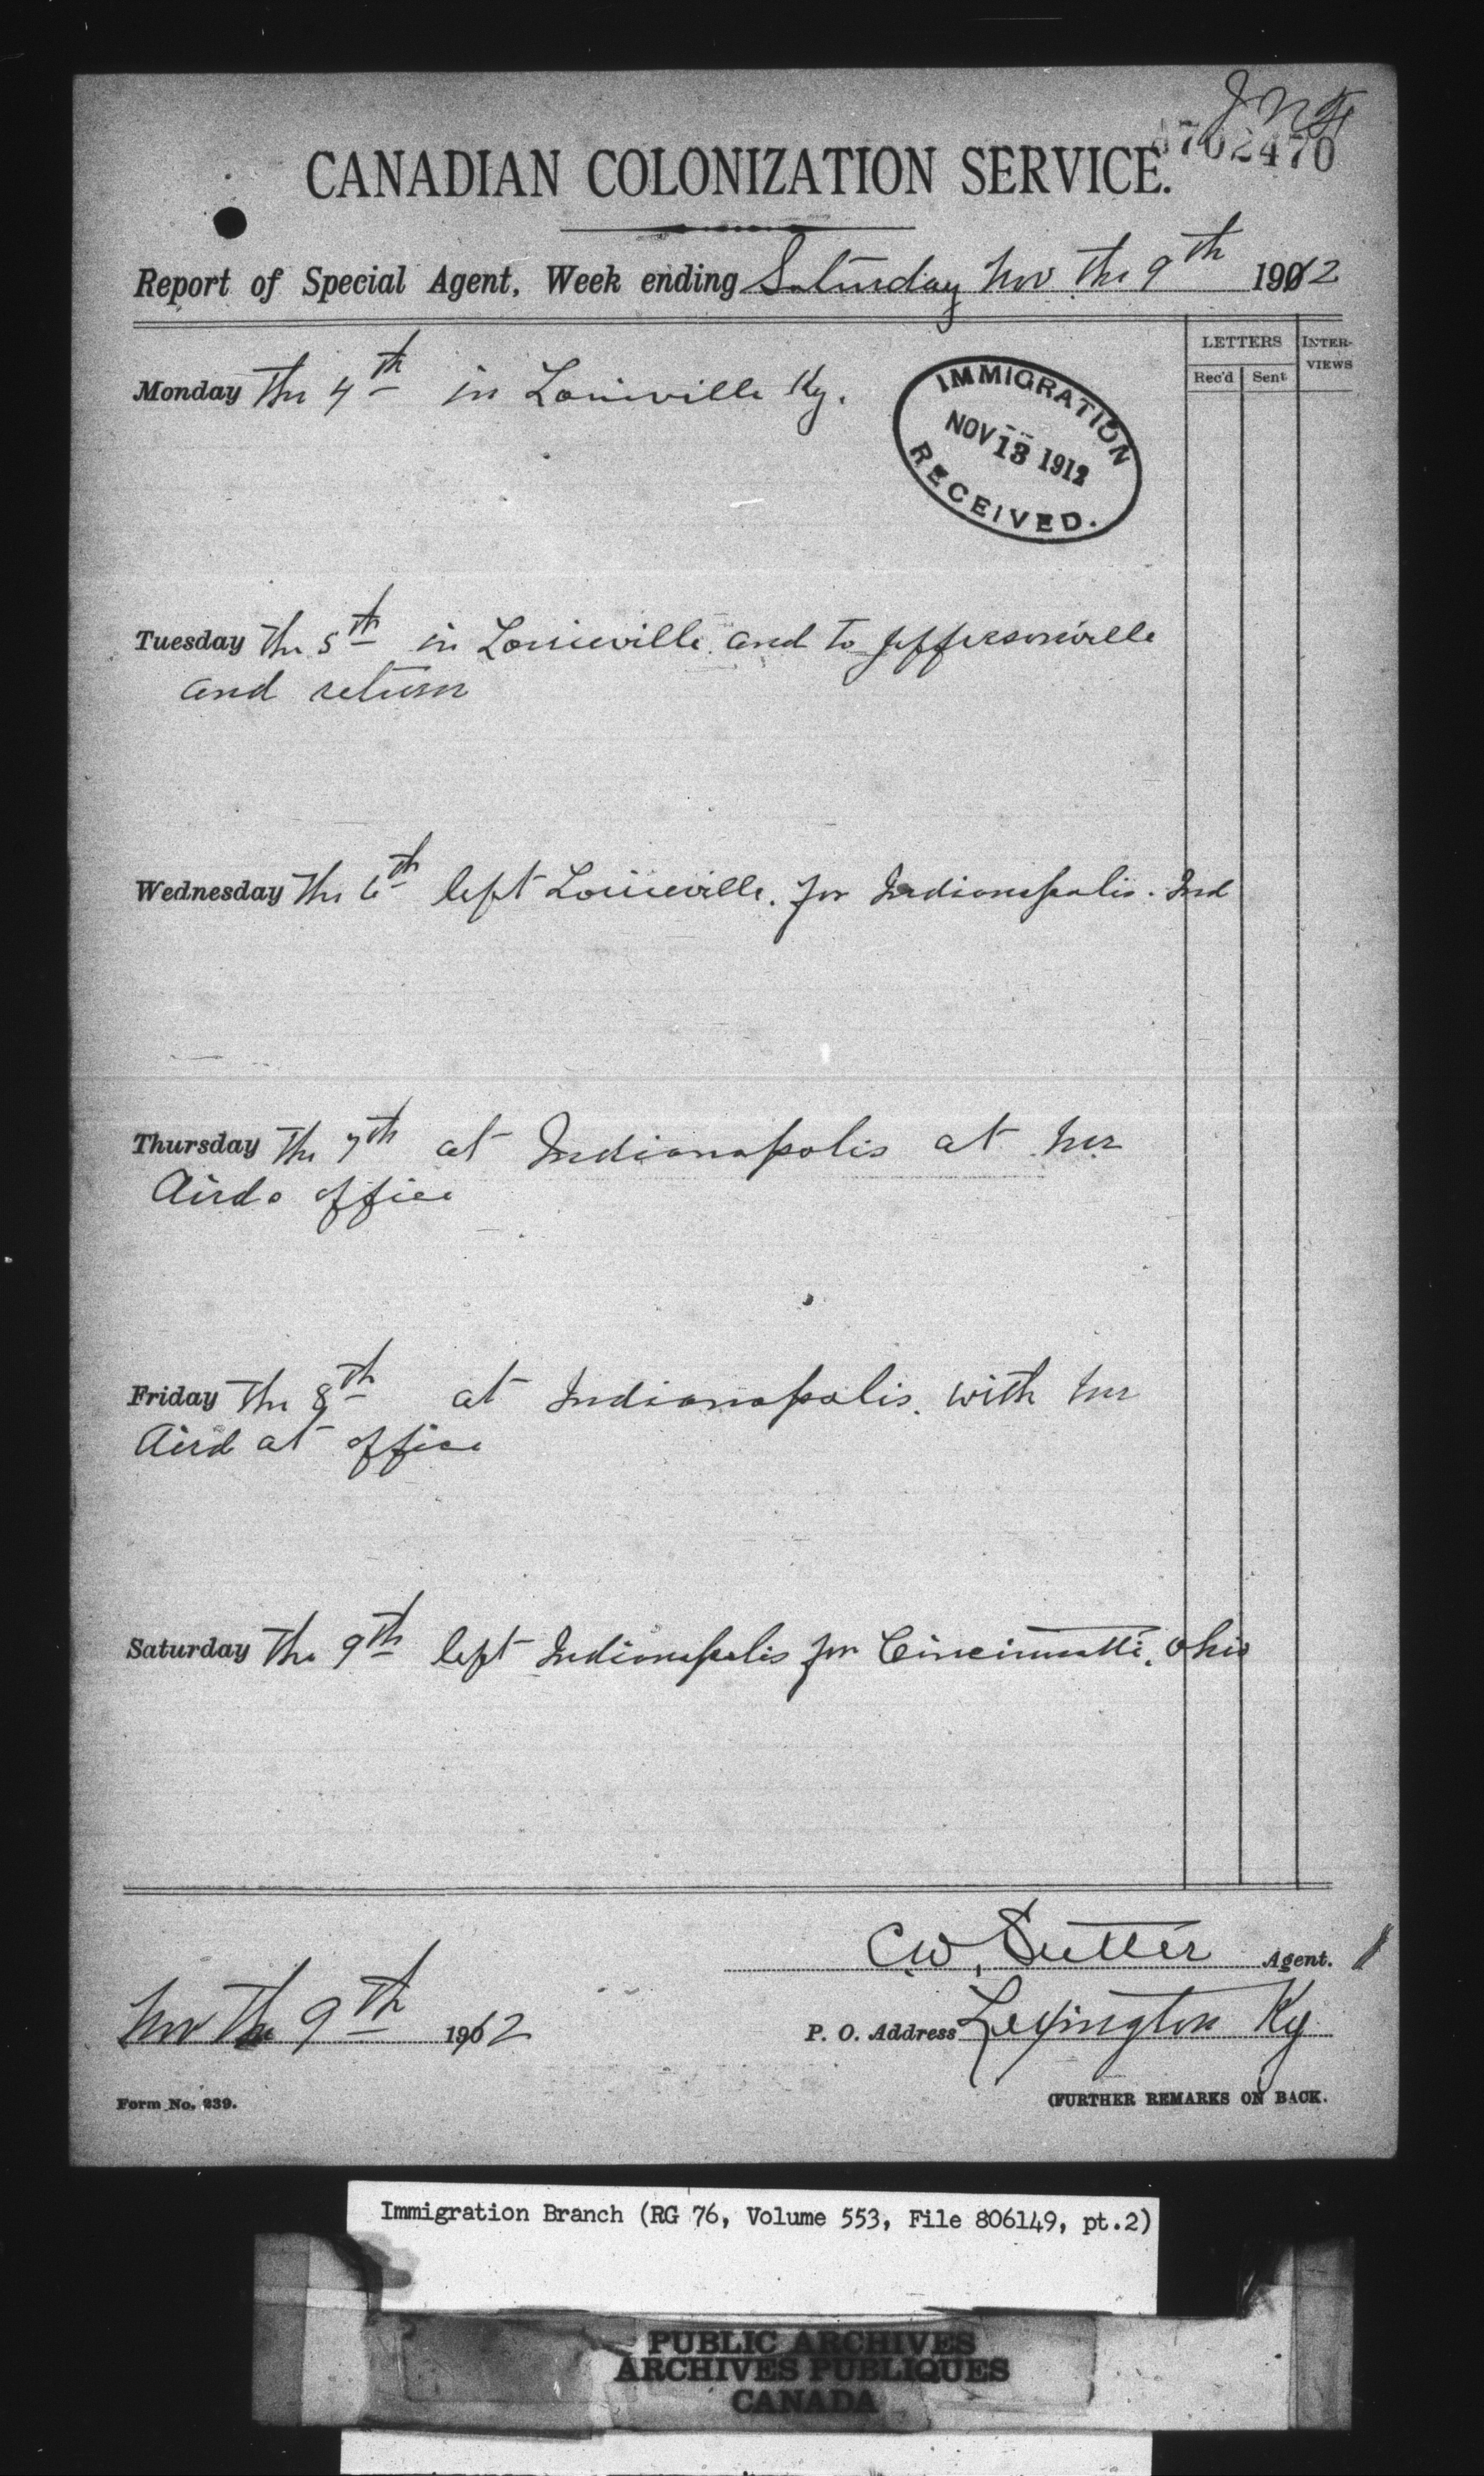 CANADIAN COLONIZATION SERVICE.
702470
Report of Special Agent, Week ending Saturday Nov the 9th 1912
LETTERS INTER-VIEWS
Rec'd Sent
Monday The 4th in Louisville Ky.
IMMIGRATION
NOV 13 1912
RECEIVED.
Tuesday The 5th in Louisville and to Jeffersonville
and return
Wednesday The 6th left Louisville. for Indianapolis. Ind
Thursday The 7th at Indianapolis at Mr
Airds office
Friday The 8th at Indianapolis. with Mr
Aird at office
Saturday The 9th left Indianapolis for Cincinnatti. Ohio
C.W. Sutter Agent.
Nov The 9th 1912
P. O. Address Lexington Ky
Form No. 239.
(FURTHER REMARKS ON BACK.
Immigration Branch (RG 76, Volume 553, File 806149, pt.2)
PUBLIC ARCHIVES
ARCHIVES PUBLIQUES
CANADA